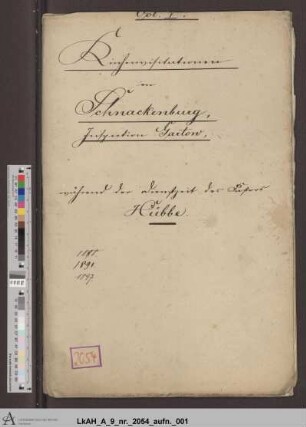 Kirchenvisitationen
in
Schnackenburg,
Inspection Gartow,
während der Dienstzeit des Pastors
Hübbe.
1891.
1897
2054
LkAH_A_9_nr._2054_aufn._001